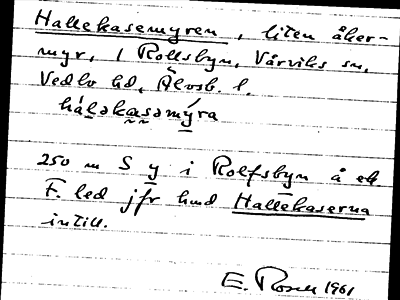 Hallekasemyren, liten åker-
myr, i Rolfsbyn, Värviks sn,
Vedbo hd, Älvsb. l.
hálǝkasǝmýra
250 m S y i Rolfsbyn å ek.
F. led jfr hmd Hallekaserna
intill.
E. Rosell 1961